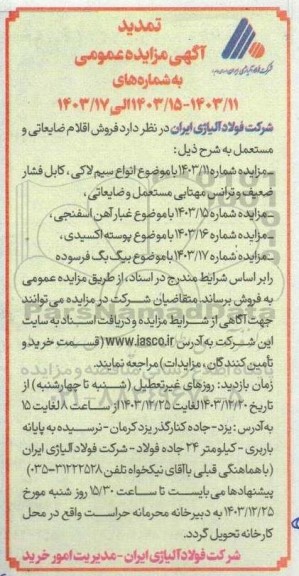 تمدید
آگهی مزایده عمومی
به شماره‌های
۱۴۰۳/۱۱-۱۴۰۳/۱۵ الی ۱۴۰۳/۱۷
شرکت فولاد آلیاژی ایران
شرکت فولاد آلیاژی ایران در نظر دارد فروش اقلام ضایعاتی و
مستعمل به شرح ذیل:
-مزایده شماره ۱۴۰۳/۱۱ با موضوع انواع سیم لاکی، کابل فشار
ضعیف و ترانس مهتابی مستعمل و ضایعاتی،
-مزایده شماره ۱۴۰۳/۱۵ با موضوع غبار آهن اسفنجی،
-مزایده شماره ۱۴۰۳/۱۶ با موضوع پوسته اکسیدی،
-مزایده شماره ۱۴۰۳/۱۷ با موضوع بیگ بگ فرسوده
را بر اساس شرایط مندرج در اسناد، از طریق مزایده عمومی
به فروش برساند. متقاضیان شرکت در مزایده می توانند
جهت آگاهی از شرایط مزایده و دریافت اسناد به سایت
این شرکت به آدرس www.iasco.ir (قسمت خرید و
تأمین کنندگان، مزایدات) مراجعه نمایند.
زمان بازدید: روزهای غیرتعطیل (شنبه تا چهارشنبه) از
تاریخ ۱۴۰۳/۱۲/۲۰ لغایت ۱۴۰۳/۱۲/۲۵ از ساعت ۸ لغایت ۱۵
به آدرس: یزد- جاده کنارگذر یزد کرمان - نرسیده به پایانه
باربری - کیلومتر ۲۴ جاده فولاد - شرکت فولاد آلیاژی ایران
(با هماهنگی قبلی با آقای نیکخواه تلفن ۳۱۲۲۲۵۲۸-۰۳۵)
پیشنهادها می بایست تا ساعت ۱۵/۳۰ روز شنبه مورخ
۱۴۰۳/۱۲/۲۵ به دبیرخانه محرمانه حراست واقع در محل
کارخانه تحویل گردد.
شرکت فولاد آلیاژی ایران - مدیریت امور خرید